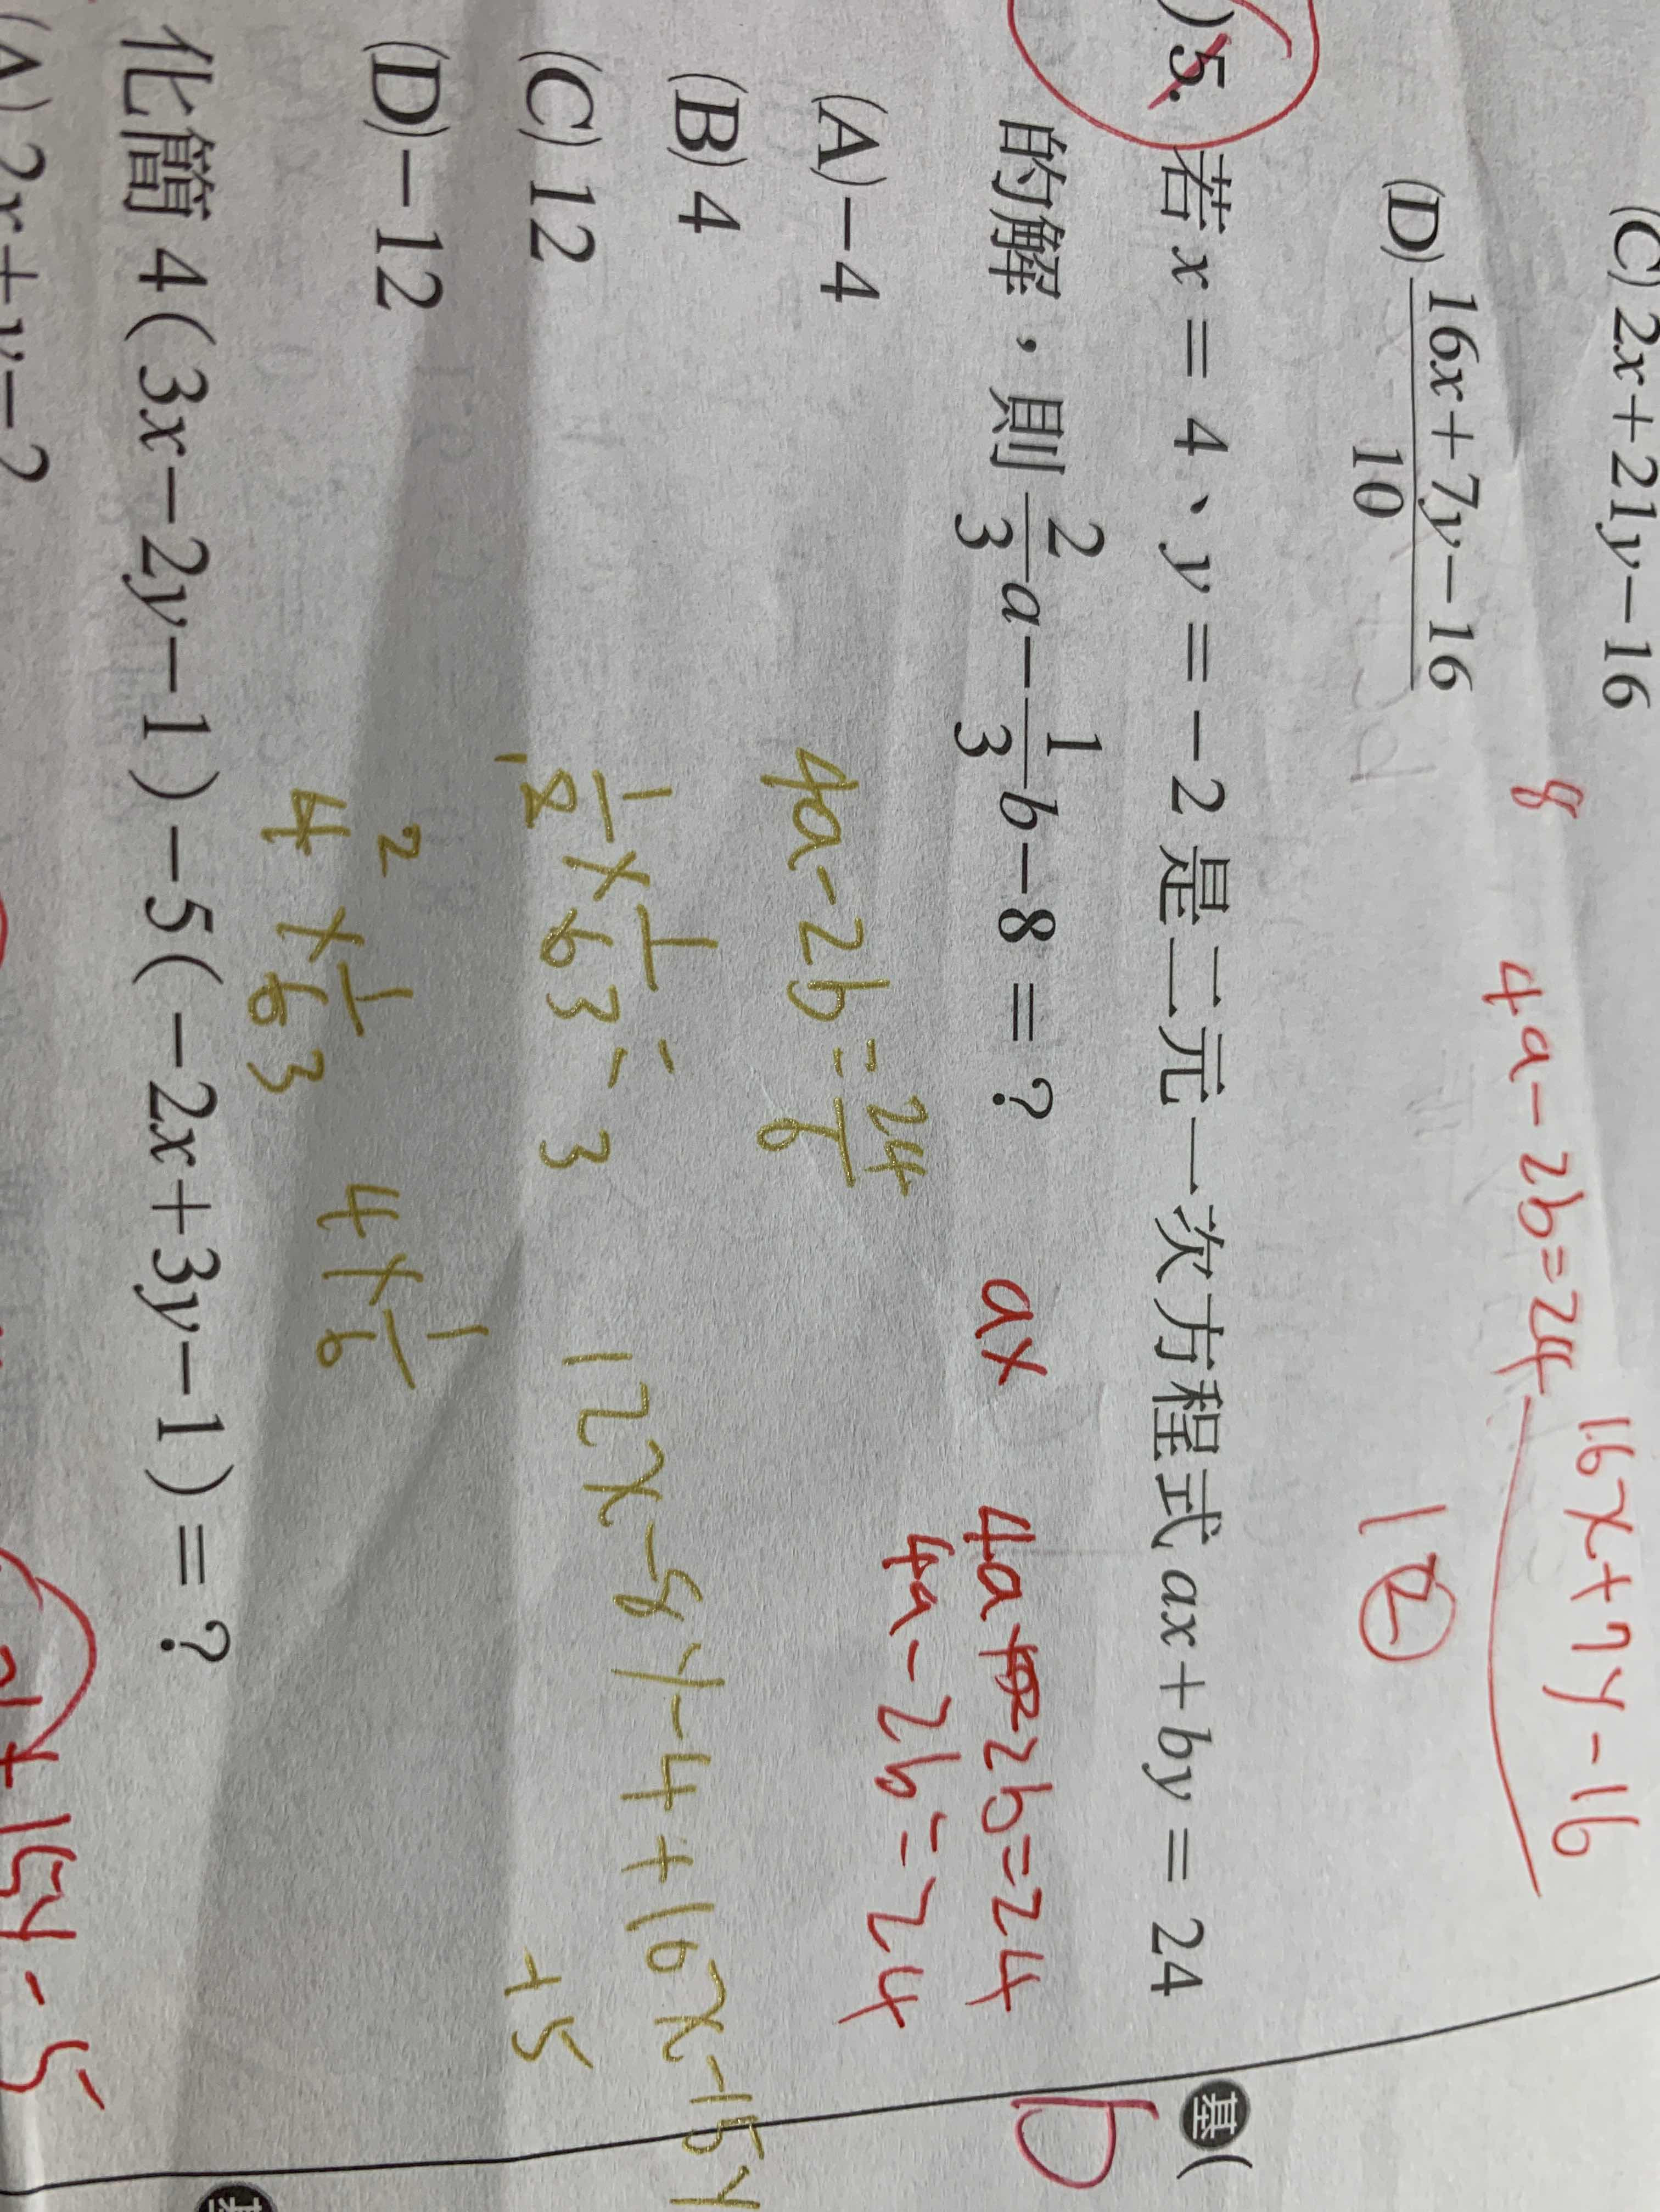 (C) 2x+21y-16
(D) 16x+7y-16 / 10
8
4a-2b=24
16x+7y-16
12
)5. 若 x = 4、y = -2 是二元一次方程式 ax + by = 24
的解，則 2/3 a - 1/3 b - 8 = ？
ax
4a-2b=24
4a-2b=24
(A) -4
(B) 4
(C) 12
(D) -12
4a-2b=24/6
1/2 × 1/6 3 =
3
2
4 × 1/6 3
4 × 1/6
12x-8y-4+16x-15y
+5
基(
D
化簡 4(3x-2y-1)-5(-2x+3y-1) = ？
(A) 2x+y-2
+15y-5
基